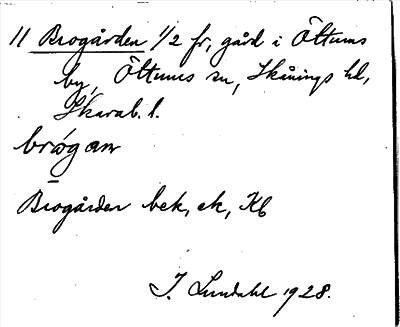 11 Brogården 1/2 fr, gård i Öttums
by, Öttums sn, Skånings hd,
Skarab. l.
brógan
Brogården bek, ek, Kb
I. Lundahl 1928.